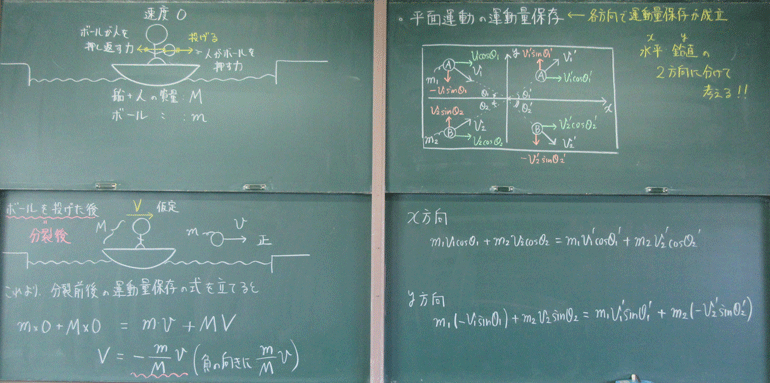 速度 0
ボールが人を
押し返す力
投げる
人がボールを
押す力
船+人の質量: M
ボール 〃 : m
ボールを投げた後
分裂後
V 仮定
M
m
v
正
これより、分裂前後の運動量保存の式を立てると
m×0+M×0 = mv+MV
V = -m/M v (負の向きに m/M v)
。平面運動の運動量保存 ← 各方向で運動量保存が成立
x y
水平 鉛直の
2方向に分けて
考える!!
A v₁cosθ₁
m₁ v₁
-v₁sinθ₁
θ₁
θ₂
v₂sinθ₂
v₂
m₂ B v₂cosθ₂
y v₁'sinθ₁' v₁'
A v₁'cosθ₁'
θ₁'
θ₂'
x
B v₂'cosθ₂'
v₂'
-v₂'sinθ₂'
x方向
m₁v₁cosθ₁+m₂v₂cosθ₂=m₁v₁'cosθ₁'+m₂v₂'cosθ₂'
y方向
m₁(-v₁sinθ₁)+m₂v₂sinθ₂=m₁v₁'sinθ₁'+m₂(-v₂'sinθ₂')